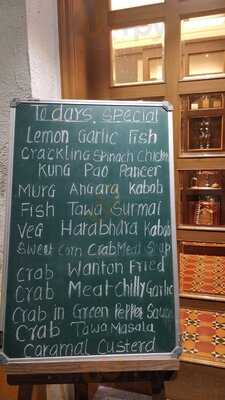 Todays. Special
Lemon Garlic Fish
Crackling Spinach Chicken
Kung Pao Paneer
Murg Angara Kabob
Fish Tawa Surmai
Veg Harabhara Kabob
Sweet Corn Crab Meat Soup
Crab Wanton Fried
Crab Meat Chilly Garlic
Crab in Green Pepper Sauce
Crab Tawa Masala
Caramal Custerd